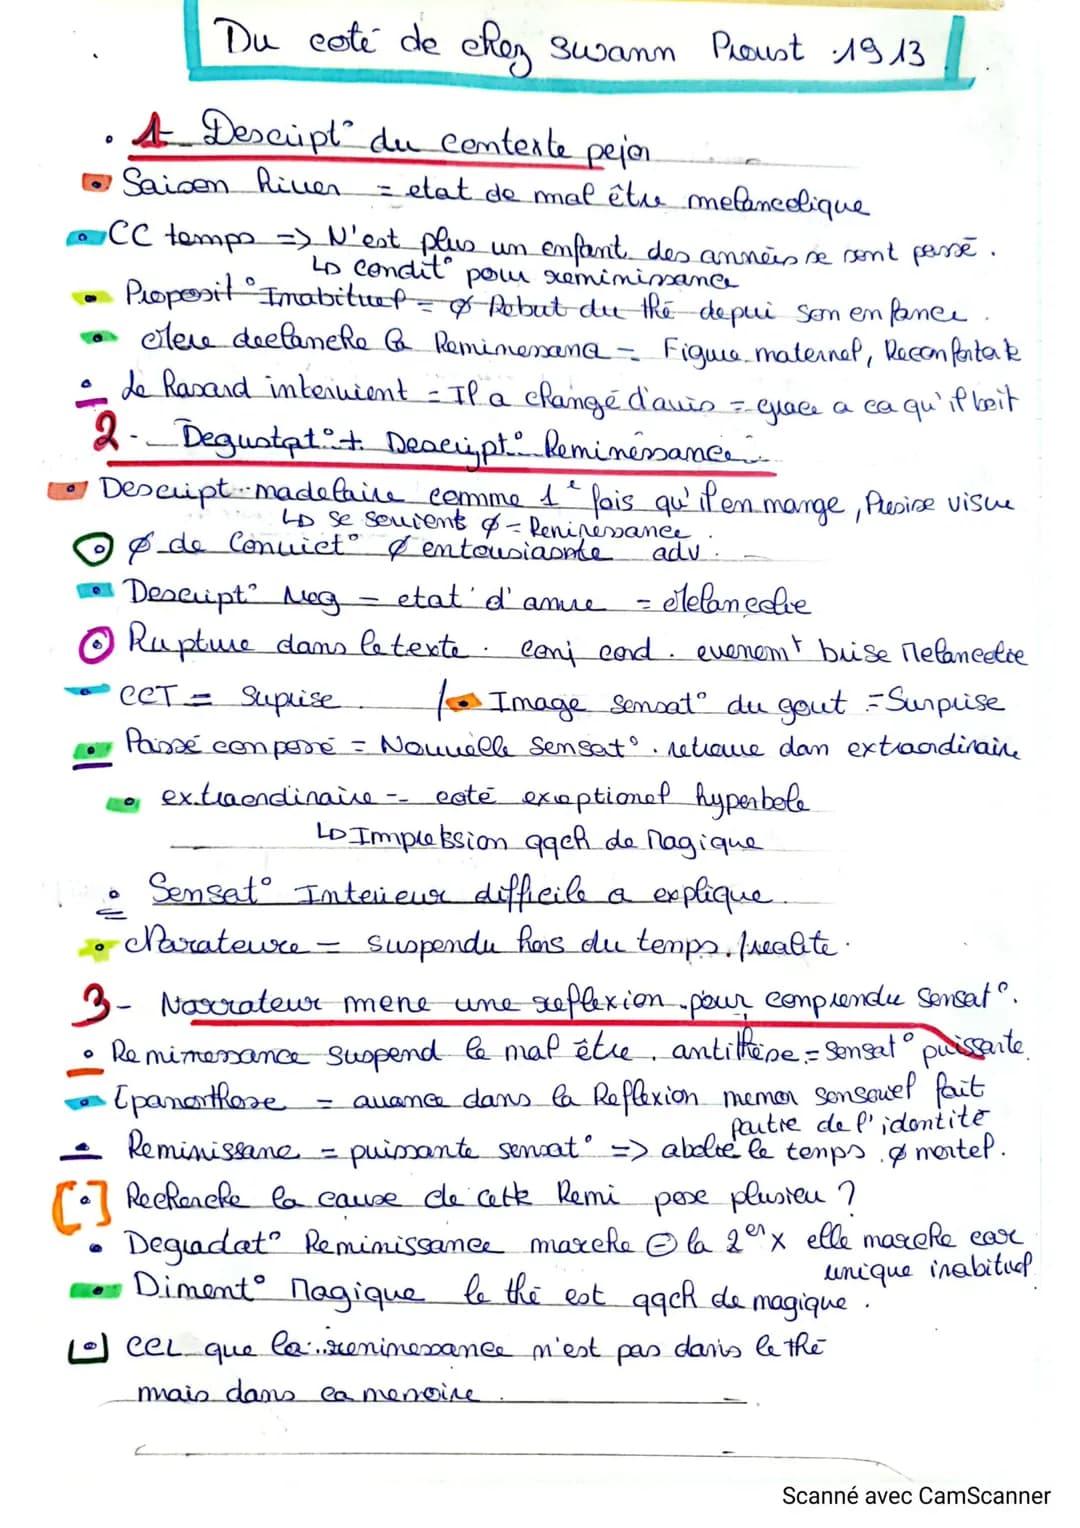 Du coté de chez Swann Proust .1913
. 1- Descript° du contexte pejor
Saison Hiver = etat de mal être melancolique
CC temps => N'est plus un enfant des années se sont passé.
↳ condit° pour reminissance
Proposit° Inabituel = ∅ Rebut du thé depui son enfance.
Mere declanche la Reminessance = Figure maternel, Reconfortate
le hasard intervient = Il a changé d'avis = grace a ca qu'il boit
2- Degustat° + Descript° Reminessance
Descript madelaine comme 1e fois qu'il en mange, Precise visue
↳ se souvient ∅ = Reniressance.
∅ de Convict° ∅ entousiasnte adv.
Descript° Neg = etat d'ame = Melancolie
Rupture dans le texte. conj cord. evenemt brise Melancolie
CCT = Suprise. / Image sensat° du gout = Surprise
Passé composé = Nouvelle sensat°. retrouve dan extraordinaire
extraordinaire = coté exeptionel hyperbole
↳ Impression qqch de Magique
Sensat° Interieur difficile a explique.
Narateure = suspendu hors du temps / realite.
3- Narrateur mene une reflexion pour comprendre sensat°.
Reminessance suspend le mal être, antithèse = sensat° puissante.
Epanorthose = avance dans la Reflexion memon sensouel fait
partie de l'identité
Reminissane = puissante sensat° => abolie le temps. ∅ mortel.
[•] Recherche la cause de cette Remi pose plusieu ?
Degradat° Reminissance marche ⊖ la 2en x elle marche car
unique inabituel
Diment° Magique le thé est qqch de magique.
CCL que la reminessance n'est pas dans le thé
mais dans ca memoire.
Scanné avec CamScanner